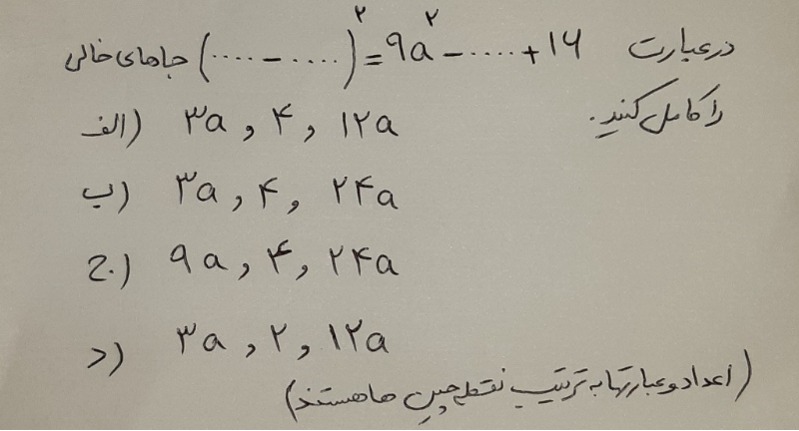 در عبارت (.... - ....)^۲ = ۹a^۲ - ..... + ۱۶ جاهای خالی
را کامل کنید.
الف) ۳a , ۴ , ۱۲a
ب) ۳a , ۴ , ۲۴a
ج) ۹a , ۴ , ۲۴a
د) ۳a , ۲ , ۱۲a
(اعداد و عبارتها به ترتیب نقطه چین ها هستند)